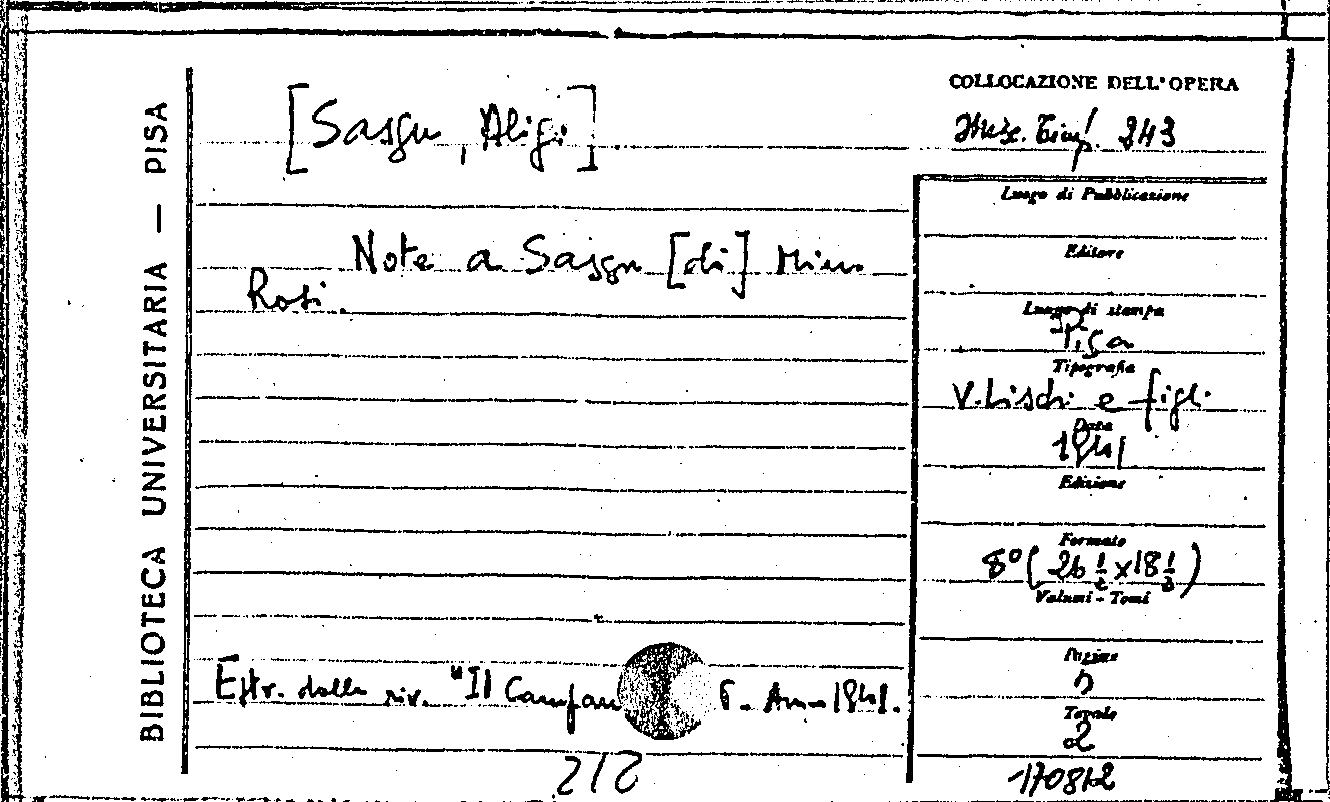 BIBLIOTECA UNIVERSITARIA — PISA
[Sassu, Aligi]
Note a Sassu [di] Mino
Rosi.
Estr. dalla riv. "Il 6. Anno 1941.
212
COLLOCAZIONE DELL'OPERA
843
Luogo di Pubblicazione
Editore
Luogo di stampa
Pisa
Tipografia
V. Lischi e figli
Data
1941
Edizione
Formato
8° (26 ½ x 18 ½)
Volumi - Tomi
Pagine
5
Tavole
2
170812